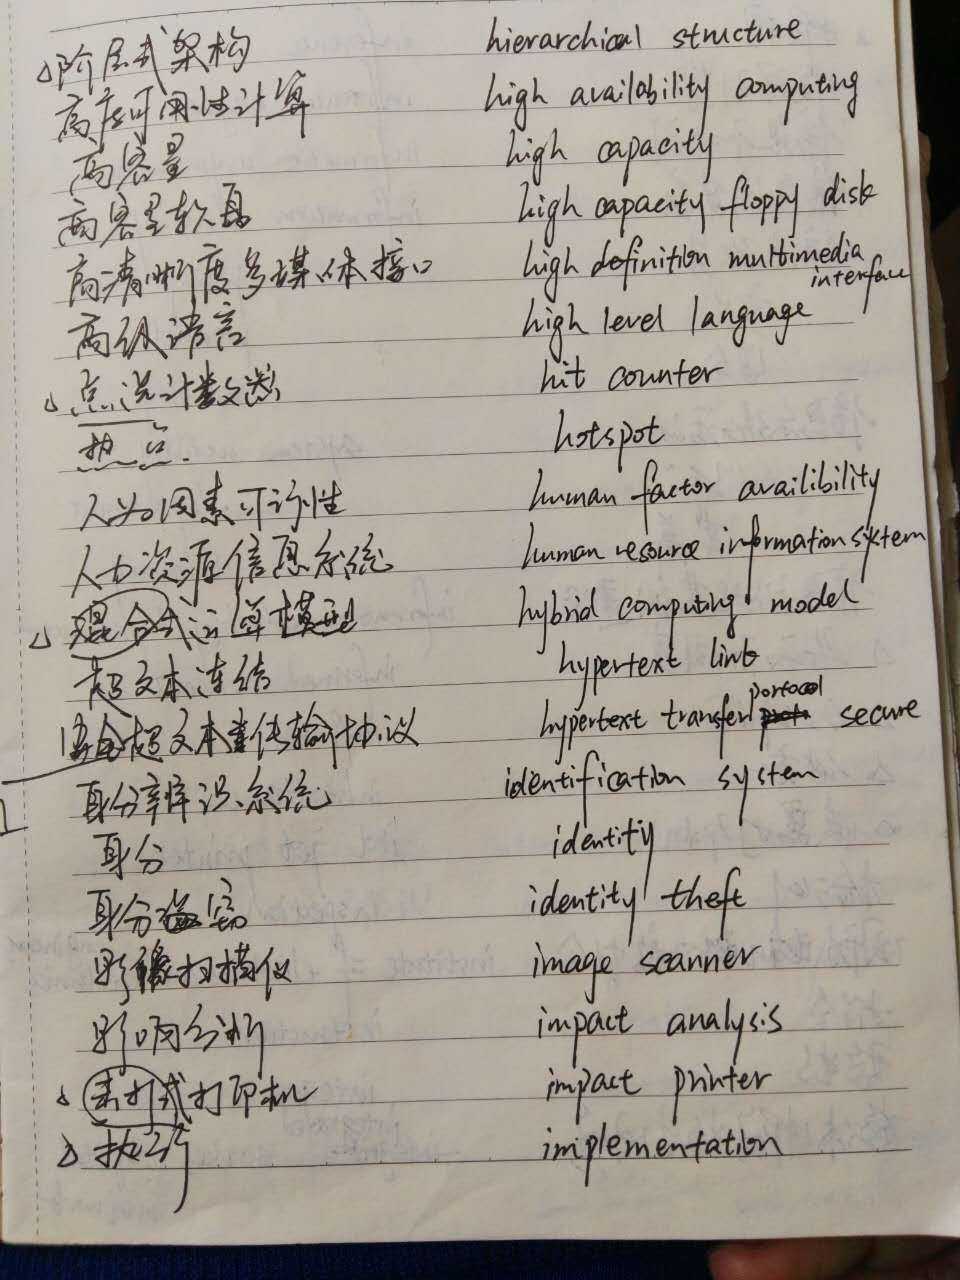 阶层式架构 hierarchical structure
高度可用性计算 high availability computing
高容量 high capacity
高容量软盘 high capacity floppy disk
高清晰度多媒体接口 high definition multimedia interface
高级语言 high level language
点进计数器 hit counter
热点. hotspot
人为因素可行性 human factor availibility
人力资源信息系统 human resource information system
混合式运算模型 hybrid computing model
超文本连结 hypertext link
安全超文本传输协议 hypertext transfer portocol secure
身分辨识系统 identification system
身分 identity
身分盗窃 identity theft
影像扫描仪 image scanner
影响分析 impact analysis
击打式打印机 impact printer
执行 implementation